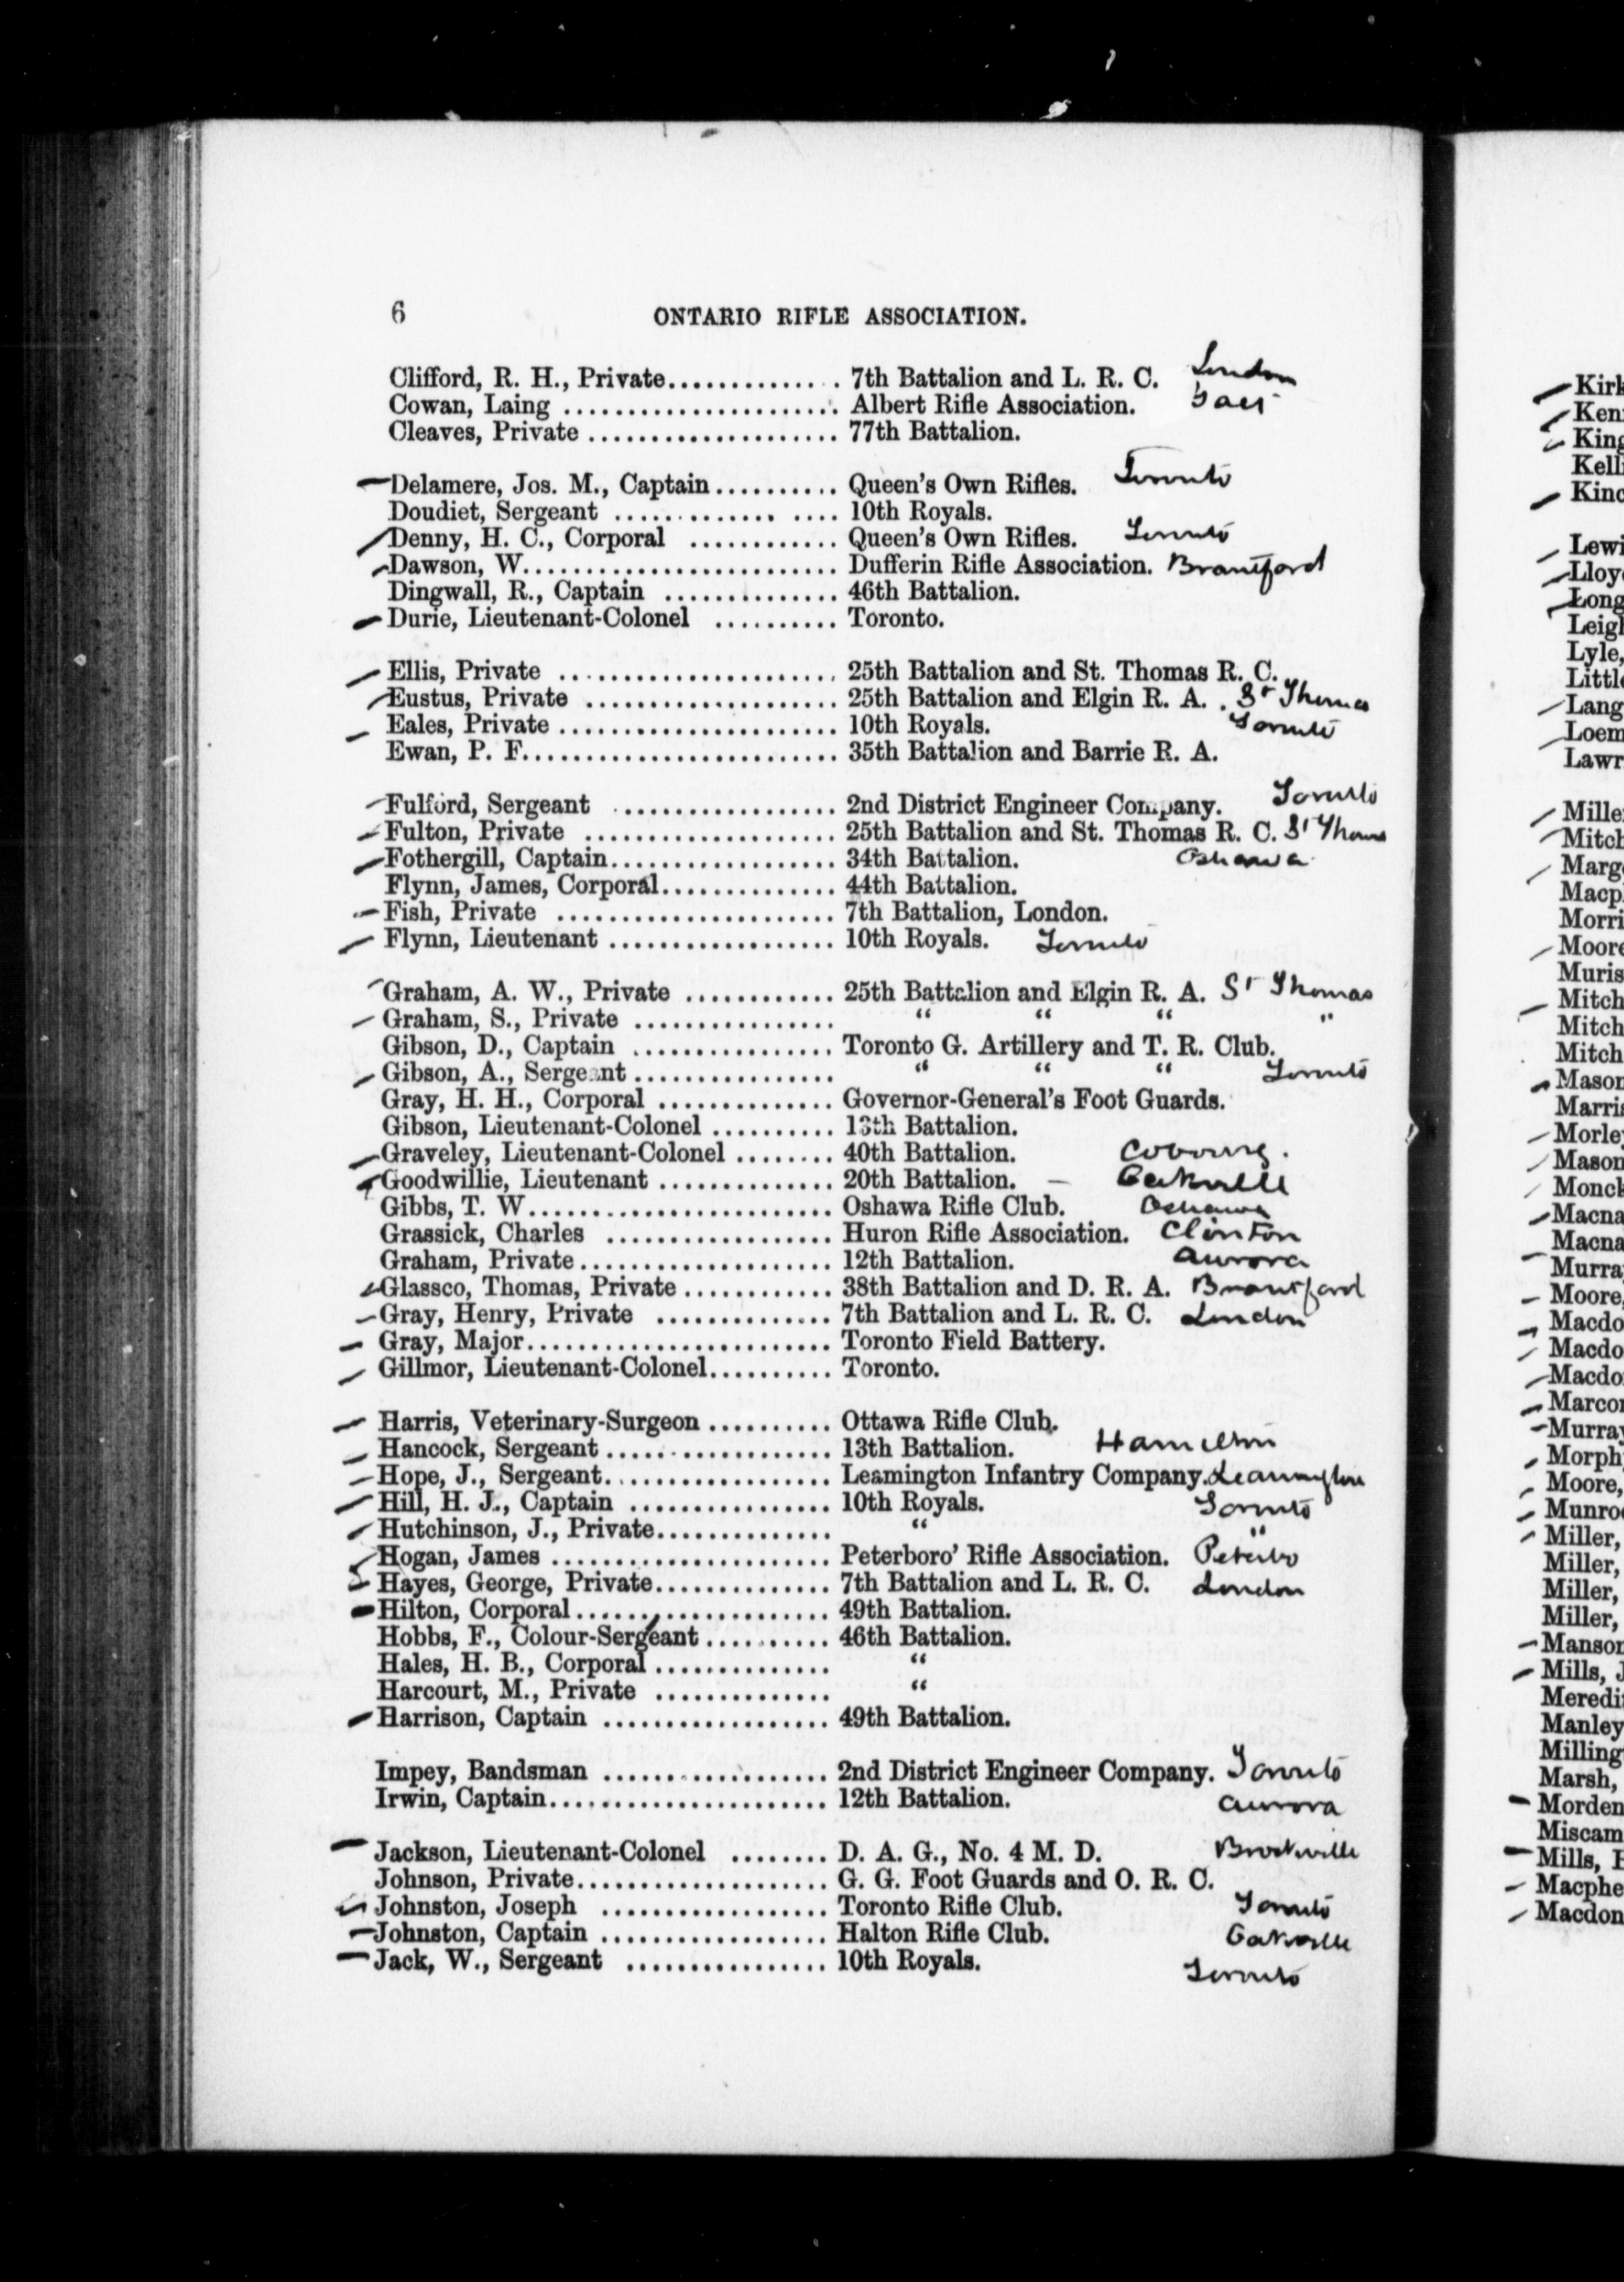 6 ONTARIO RIFLE ASSOCIATION.
Clifford, R. H., Private.............. 7th Battalion and L. R. C. London
Cowan, Laing ...................... Albert Rifle Association. Galt
Cleaves, Private .................... 77th Battalion.
Delamere, Jos. M., Captain.......... Queen's Own Rifles. Toronto
Doudiet, Sergeant .................. 10th Royals.
Denny, H. C., Corporal ............ Queen's Own Rifles. Toronto
Dawson, W......................... Dufferin Rifle Association. Brantford
Dingwall, R., Captain .............. 46th Battalion.
Durie, Lieutenant-Colonel .......... Toronto.
Ellis, Private ...................... 25th Battalion and St. Thomas R. C.
Eustus, Private .................... 25th Battalion and Elgin R. A. St Thomas
Eales, Private ...................... 10th Royals. Toronto
Ewan, P. F......................... 35th Battalion and Barrie R. A.
Fulford, Sergeant .................. 2nd District Engineer Company. Toronto
Fulton, Private .................... 25th Battalion and St. Thomas R. C. St Thomas
Fothergill, Captain.................. 34th Battalion. Oshawa
Flynn, James, Corporal.............. 44th Battalion.
Fish, Private ...................... 7th Battalion, London.
Flynn, Lieutenant .................. 10th Royals. Toronto
Graham, A. W., Private ............ 25th Battalion and Elgin R. A. St Thomas
Graham, S., Private ................ “ “ “ "
Gibson, D., Captain ................ Toronto G. Artillery and T. R. Club.
Gibson, A., Sergeant ................ “ “ “ Toronto
Gray, H. H., Corporal .............. Governor-General's Foot Guards.
Gibson, Lieutenant-Colonel .......... 13th Battalion.
Graveley, Lieutenant-Colonel ........ 40th Battalion. Cobourg.
Goodwillie, Lieutenant .............. 20th Battalion. — Oakville
Gibbs, T. W........................ Oshawa Rifle Club. Oshawa
Grassick, Charles .................. Huron Rifle Association. Clinton
Graham, Private.................... 12th Battalion. Aurora
Glassco, Thomas, Private ............ 38th Battalion and D. R. A. Brantford
Gray, Henry, Private .............. 7th Battalion and L. R. C. London
Gray, Major........................ Toronto Field Battery.
Gillmor, Lieutenant-Colonel.......... Toronto.
Harris, Veterinary-Surgeon .......... Ottawa Rifle Club.
Hancock, Sergeant .................. 13th Battalion. Hamilton
Hope, J., Sergeant.................. Leamington Infantry Company. Leamington
Hill, H. J., Captain ................ 10th Royals. Toronto
Hutchinson, J., Private.............. “ "
Hogan, James ...................... Peterboro' Rifle Association. Peterbo
Hayes, George, Private.............. 7th Battalion and L. R. C. London
Hilton, Corporal .................... 49th Battalion.
Hobbs, F., Colour-Sergeant .......... 46th Battalion.
Hales, H. B., Corporal .............. “
Harcourt, M., Private .............. “
Harrison, Captain .................. 49th Battalion.
Impey, Bandsman .................. 2nd District Engineer Company. Toronto
Irwin, Captain...................... 12th Battalion. Aurora
Jackson, Lieutenant-Colonel ........ D. A. G., No. 4 M. D. Brockville
Johnson, Private.................... G. G. Foot Guards and O. R. C.
Johnston, Joseph .................. Toronto Rifle Club. Toronto
Johnston, Captain .................. Halton Rifle Club. Oakville
Jack, W., Sergeant ................ 10th Royals. Toronto
Lewi
Lloy
Long
Lyle,
Lang
Loem
Lawr
Mitch
Morri
Moore
Muris
Mitch
Mitch
Mitch
Mason
Marris
Morley
Mason
Monck
Macna
Macna
Murra
Moore,
Macdo
Macdo
Macdo
Marcon
Murray
Morph
Moore,
Munro
Miller,
Miller,
Miller,
Miller,
Manson
Mills, J
Meredi
Manley
Milling
Marsh,
Morden
Miscam
Mills, H
Macphe
Macdon